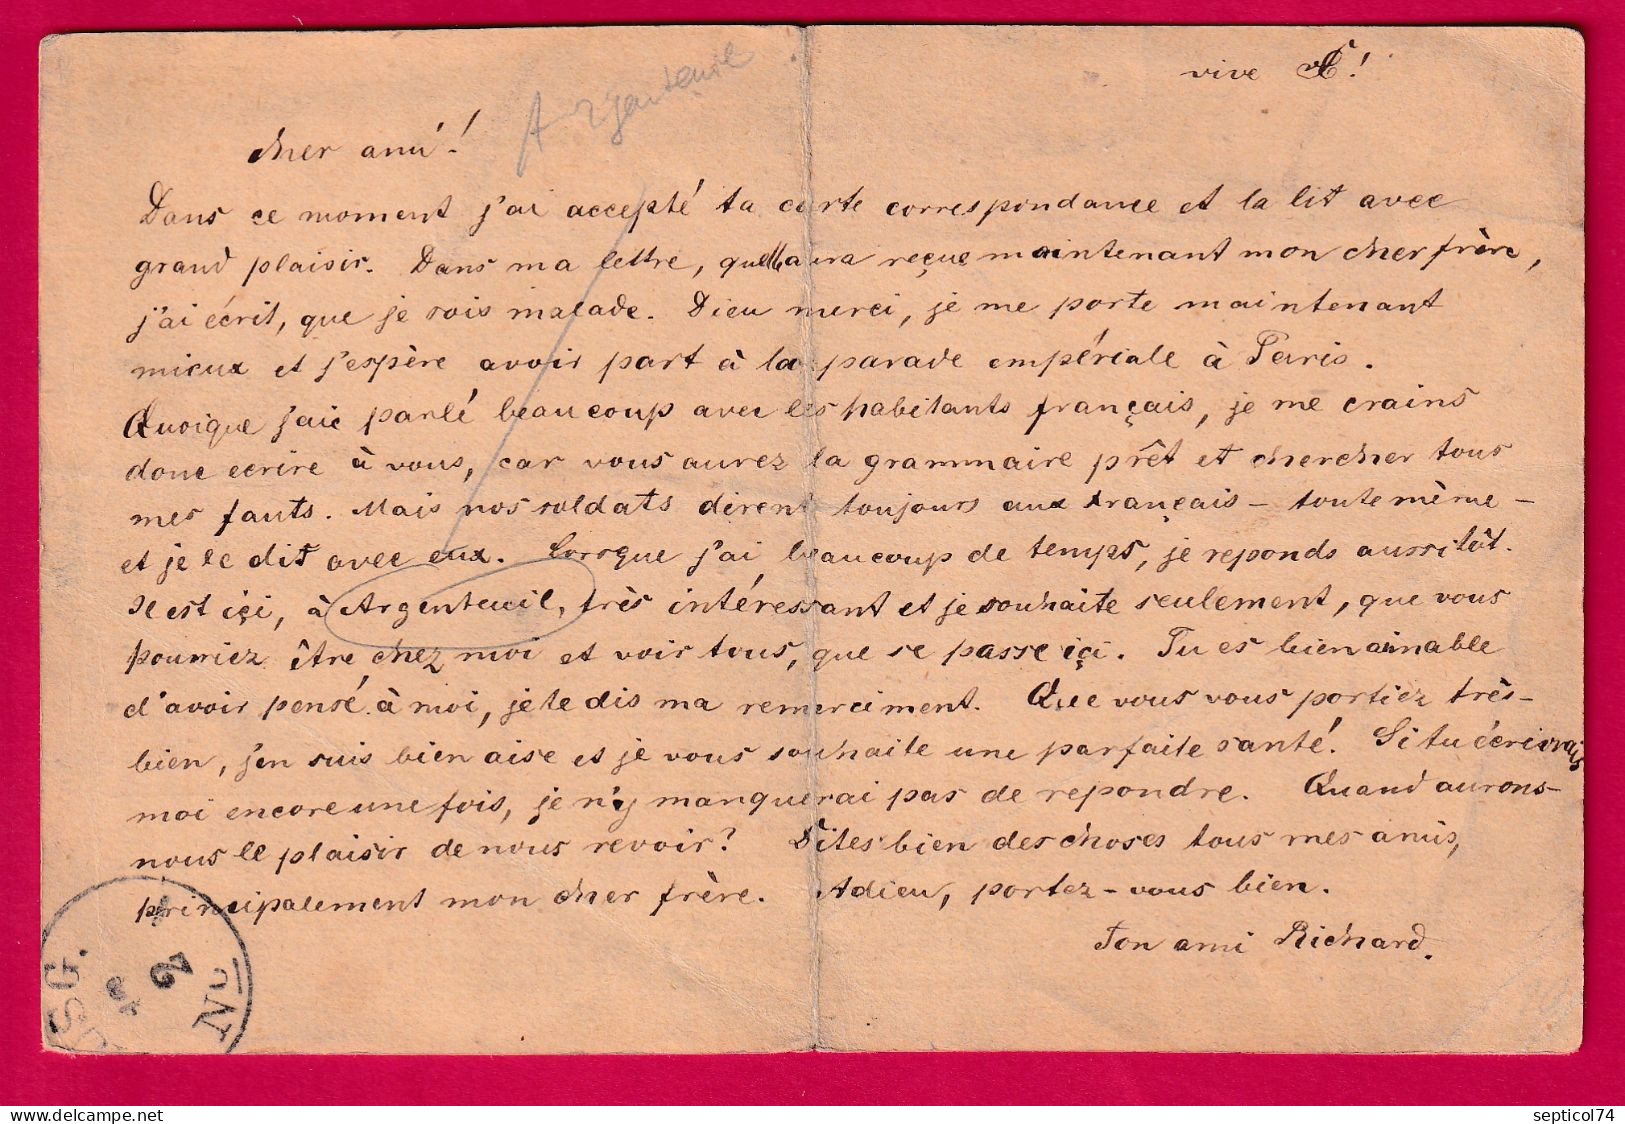 vive
Argenteuil
cher ami!
Dans ce moment j'ai accepté ta carte correspondance et la lit avec
grand plaisir. Dans ma lettre, quelle aura reçue maintenant mon cher frère,
j'ai écrit, que je sois malade. Dieu merci, je me porte maintenant
mieux et j'espère avoir part à la parade empériale à Paris.
Quoique j'aie parlé beaucoup avec les habitants français, je me crains
donc ecrire à vous, car vous aurez la grammaire prêt et chercher tous
mes fauts. Mais nos soldats dirent toujours aux français – toute même –
et je le dit avec eux. Lorsque j'ai beaucoup de temps, je reponds aussitôt.
Il est içi, à Argenteuil, très intéressant et je souhaite seulement, que vous
pourriez être chez moi et voir tous, que se passe içi. Tu es bien aimable
d'avoir pensé à moi, je te dis ma remerciment. Que vous vous portiez très-
bien, j'en suis bien aise et je vous souhaite une parfaite santé. Si tu écrivrais
moi encore une fois, je n'y manquerai pas de repondre. Quand aurons-
nous le plaisir de nous revoir? Dites bien des choses tous mes amis,
principalement mon cher frère. Adieu, portez-vous bien.
Ton ami Richard.
SG.
2
No
septicol74